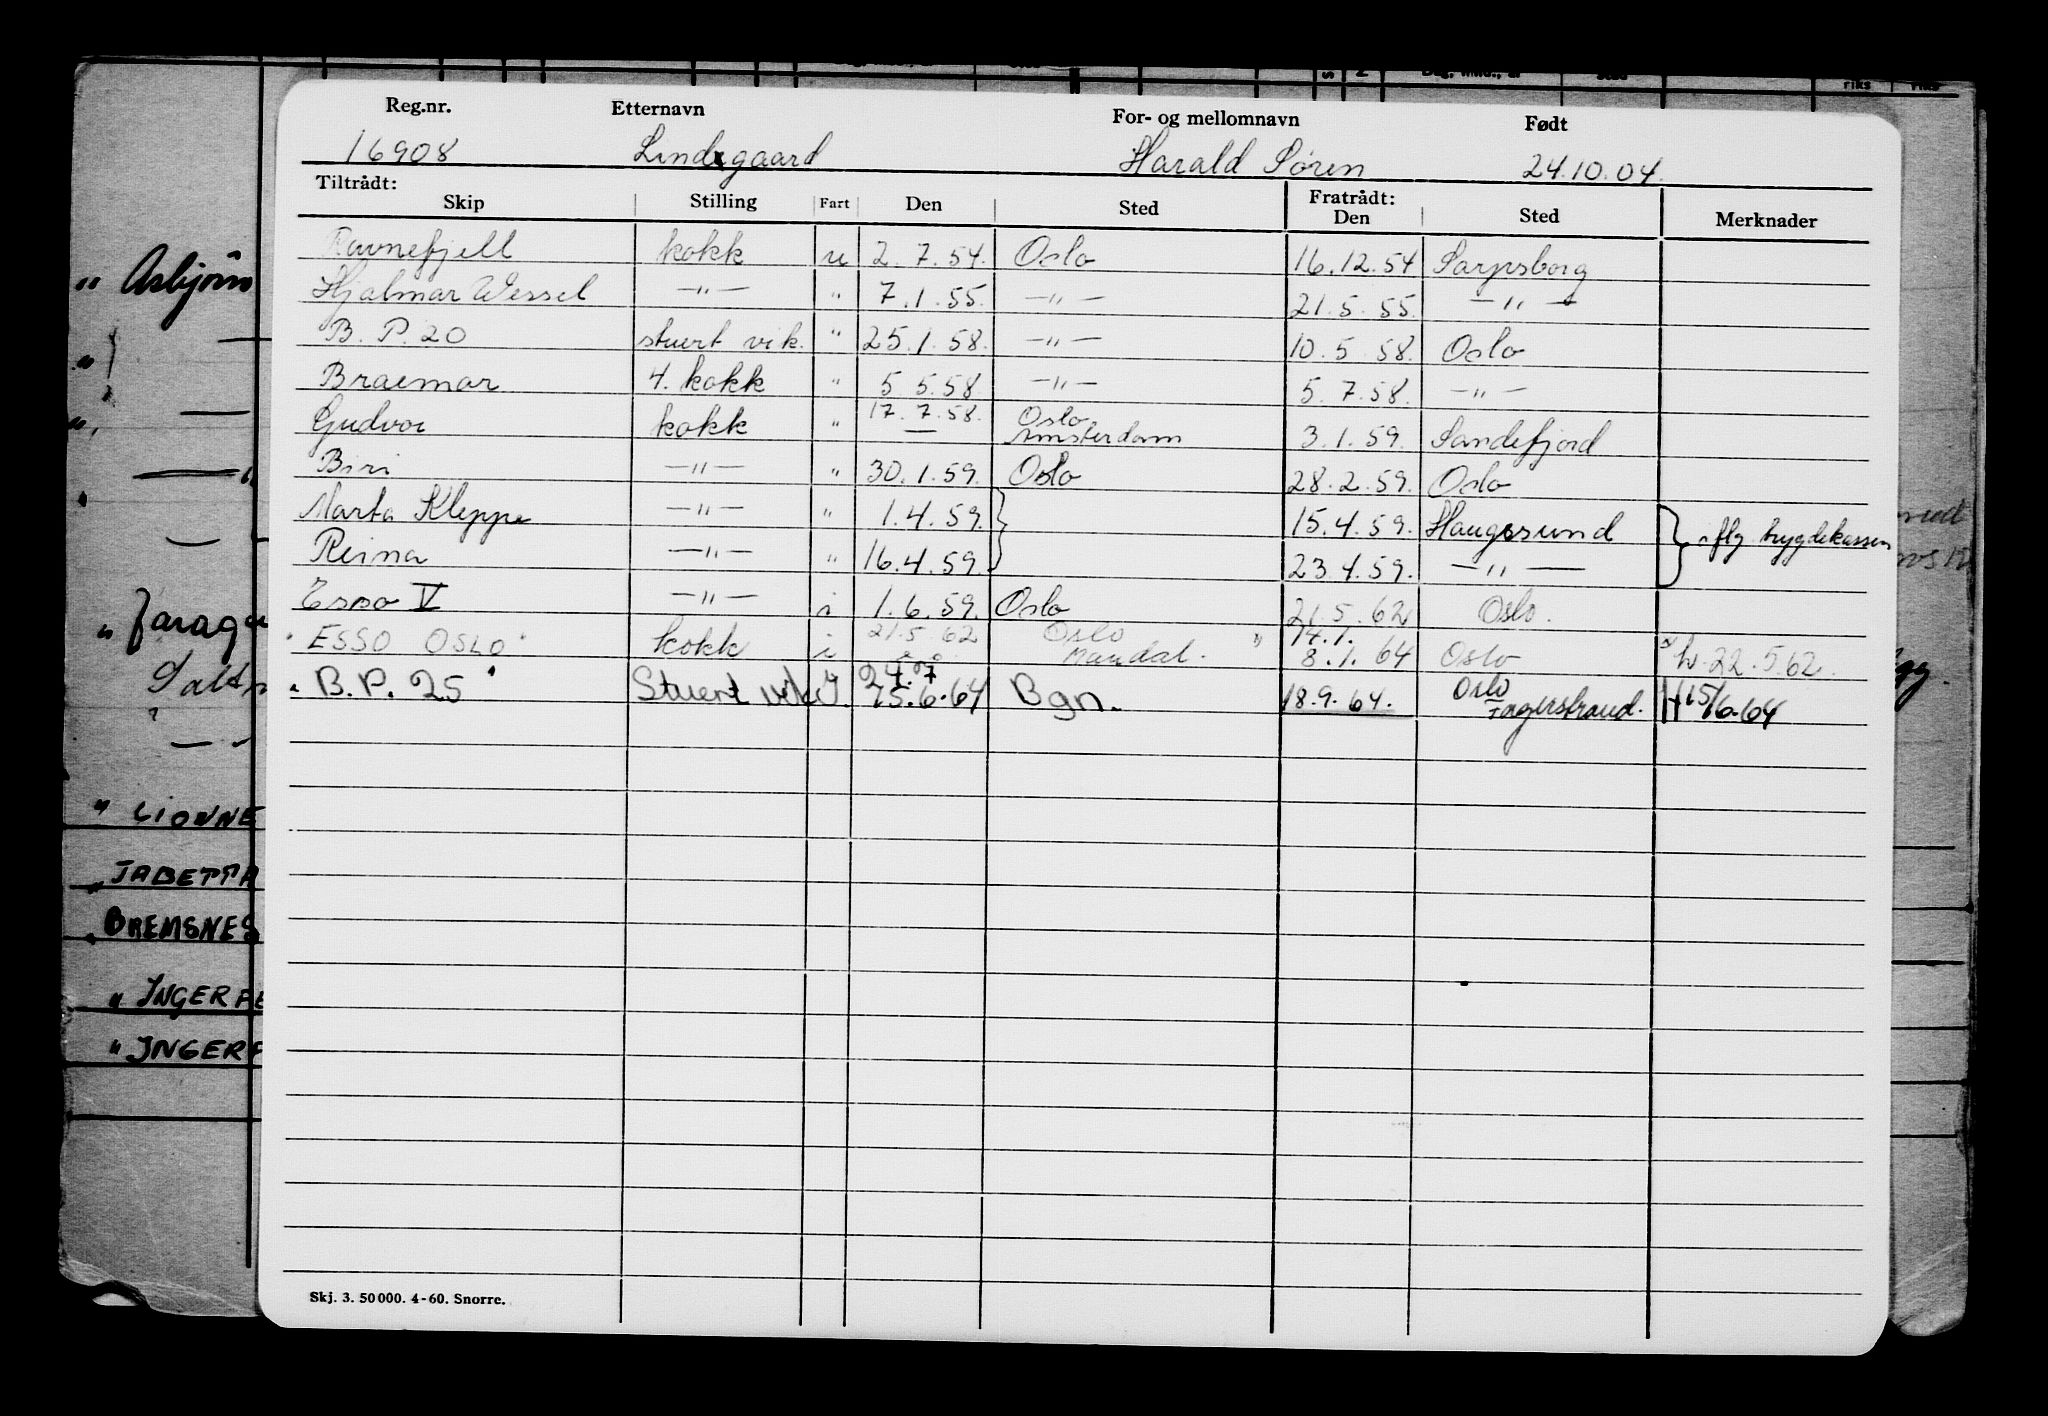 Reg.nr. Etternavn For- og mellomnavn Født
16908 Lindegaard Harald Søren 24.10.04.
Tiltrådt: Fratrådt:
Skip Stilling Fart Den Sted Den Sted Merknader
Ravnefjell kokk u 2.7.54. Oslo 16.12.54 Sarpsborg
Hjalmar Wessel —"— " 7.1.55. —"— 21.5.55. —"—
B.P. 20 stuert vik. " 25.1.58. —"— 10.5.58. Oslo
Braemar 4. kokk " 5.5.58. —"— 5.7.58. —"—
Gudvor kokk " 17.7.58. Oslo
— Amsterdam 3.1.59. Sandefjord
Biri —"— " 30.1.59. Oslo 28.2.59. Oslo
Marta Kleppe —"— " 1.4.59. 15.4.59. Haugesund
iflg trygdekassen
Reina —"— " 16.4.59. 23.4.59. —"—
Esso V —"— i 1.6.59. Oslo 21.5.62 Oslo.
"ESSO OSLO" kokk i 21.5.62 Oslo " 14.1.
Mandal. 8.1.64 Oslo h. 22.5.62.
"B.P. 25" Stuert vik I. 24.7 Oslo
15.6.64 Bgn. 18.9.64. Fagerstrand. H 15/6-64
Skj. 3. 50000. 4-60. Snorre.
" Asbjörn
" LIONNE
" JABETTA
BREMSNES
" INGERFE
" INGERF